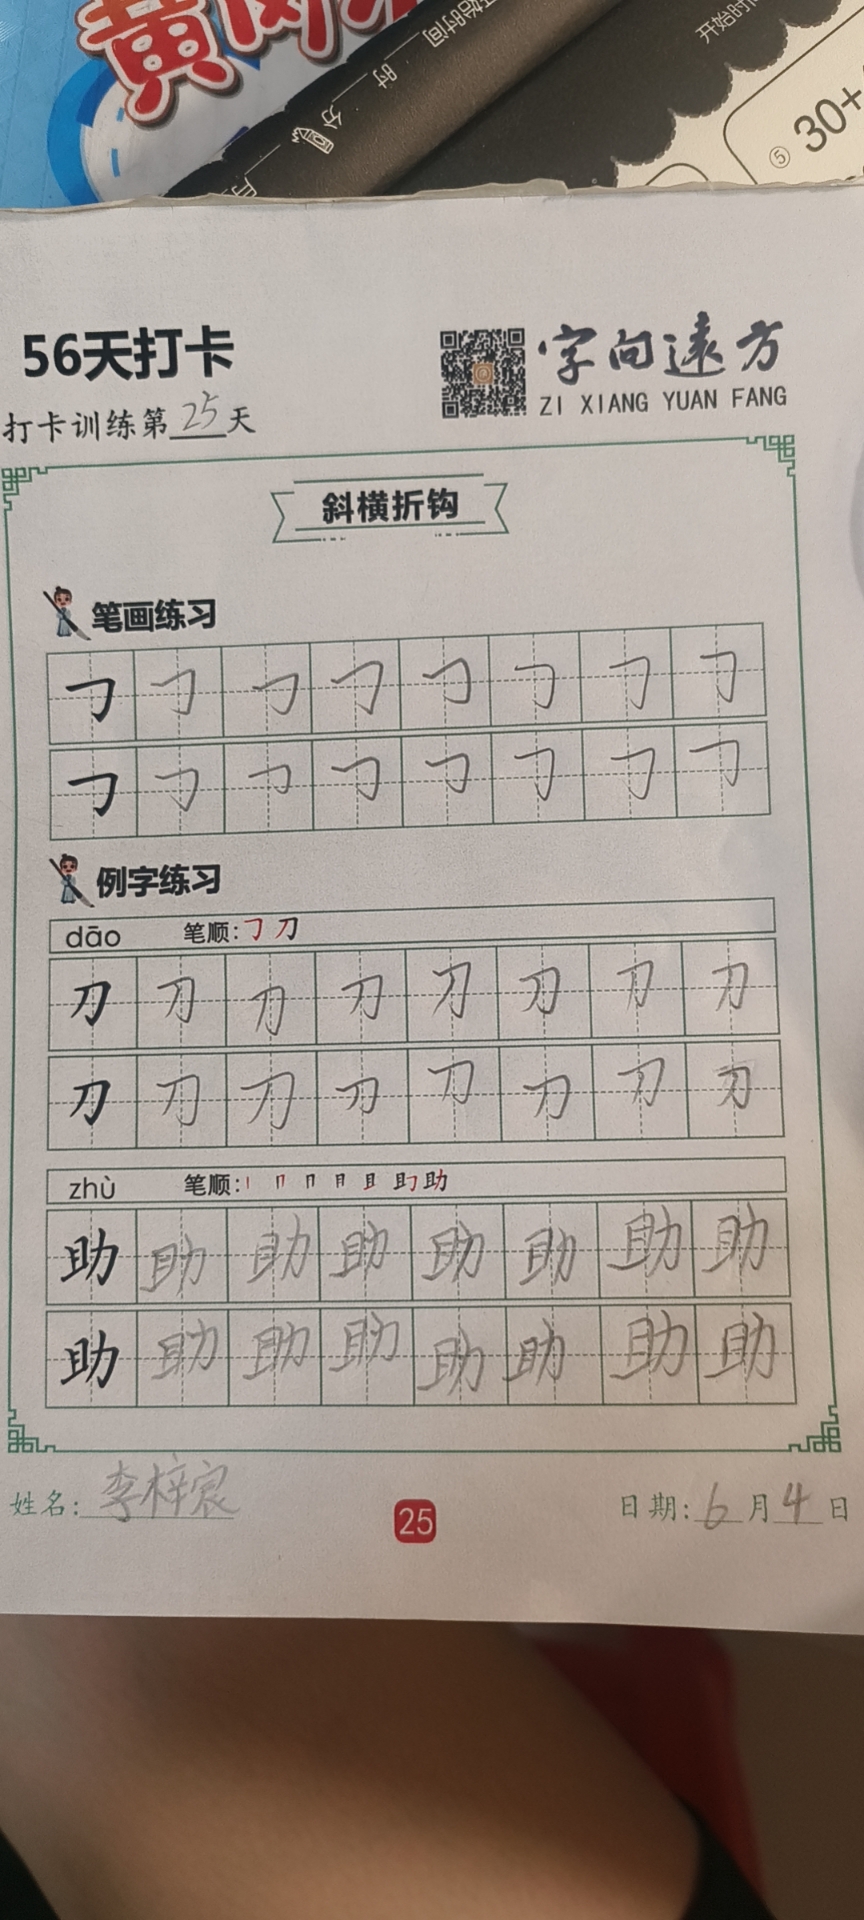 黄冈
开始时间
时 分
月
开始时
⑤ 30+
56天打卡
字向远方
ZI XIANG YUAN FANG
打卡训练第25天
斜横折钩
笔画练习
例字练习
dāo 笔顺: 𠃌 刀
刀 刀 刀 刀 刀 刀 刀 刀
刀 刀 刀 刀 刀 刀 刀 刀
zhù 笔顺: 助
助 助 助 助 助 助 助 助
助 助 助 助 助 助 助 助
姓名: 李梓宸
25
日期: 6月4日